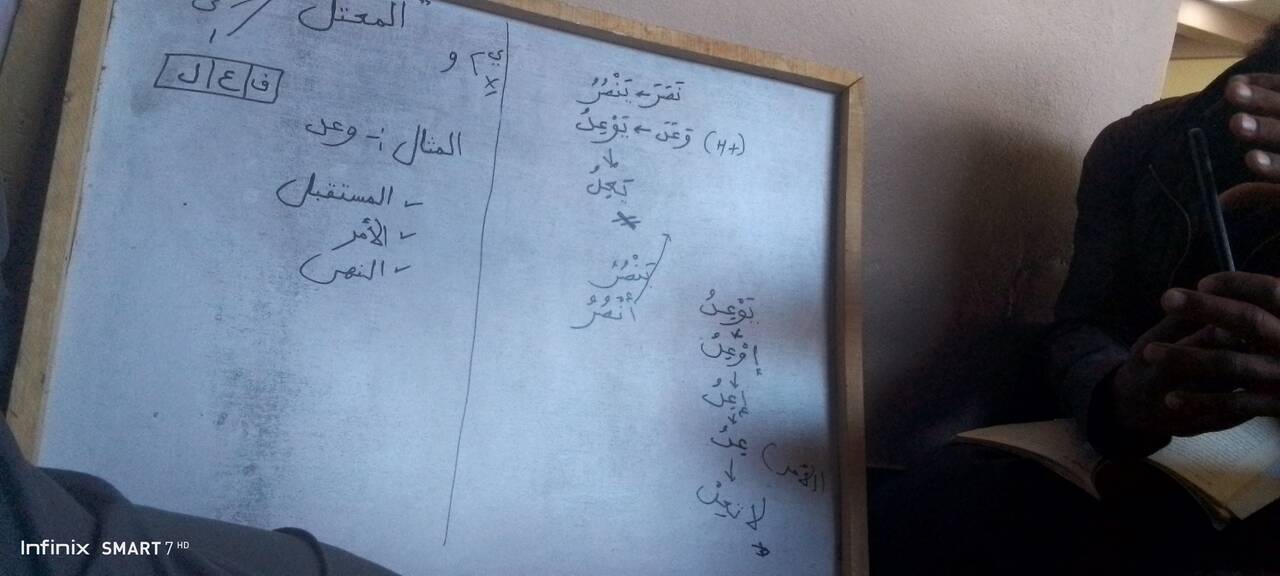 المعتل
ي ا و
ف ع ل
المثال :- وعد
- المستقبل
- الأمر
- النهى
نَصَرَ ← يَنْصُرُ
(+H) وَعَدَ ← يَوْعِدُ
↓
يَعِدُ
*
يَنْصُرُ
أُنْصُرُ
يَوْعِدُ
↓
اِوْعِدُ
↓
اِعِدُ
↓
عِدُ (الأمر
↓
لا تَعِدْ
*
Infinix SMART 7 HD